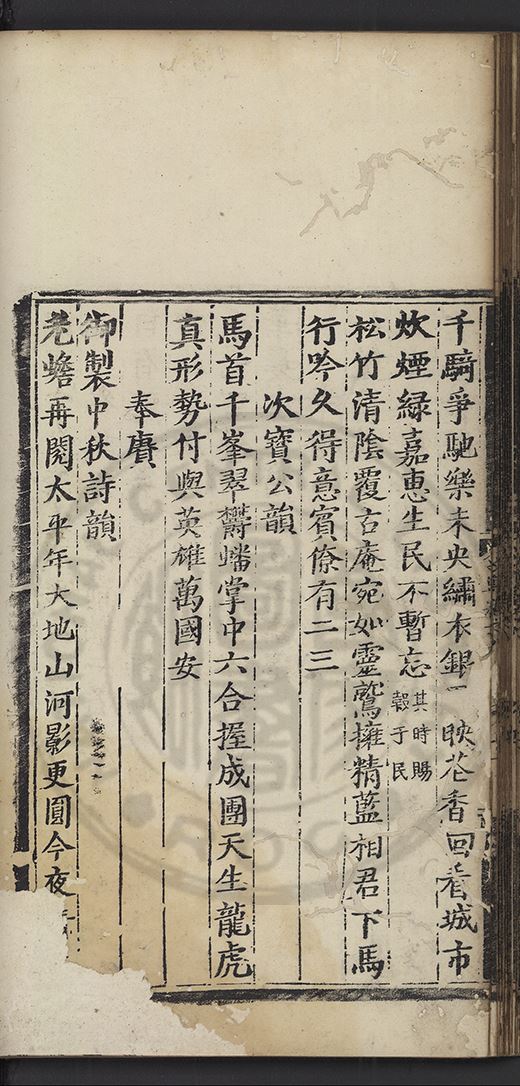 千騎爭馳樂未央繡衣銀映花香回看城市
炊煙綠嘉惠生民不暫忘其時賜穀于民
松竹清陰覆古庵宛如靈鷲擁精藍相君下馬
行吟久得意賓僚有二三
次寶公韻
馬首千峯翠欝蟠掌中六合握成團天生龍虎
真形勢付與英雄萬國安
奉賡
御製中秋詩韻
老蟾再閱太平年大地山河影更圓今夜